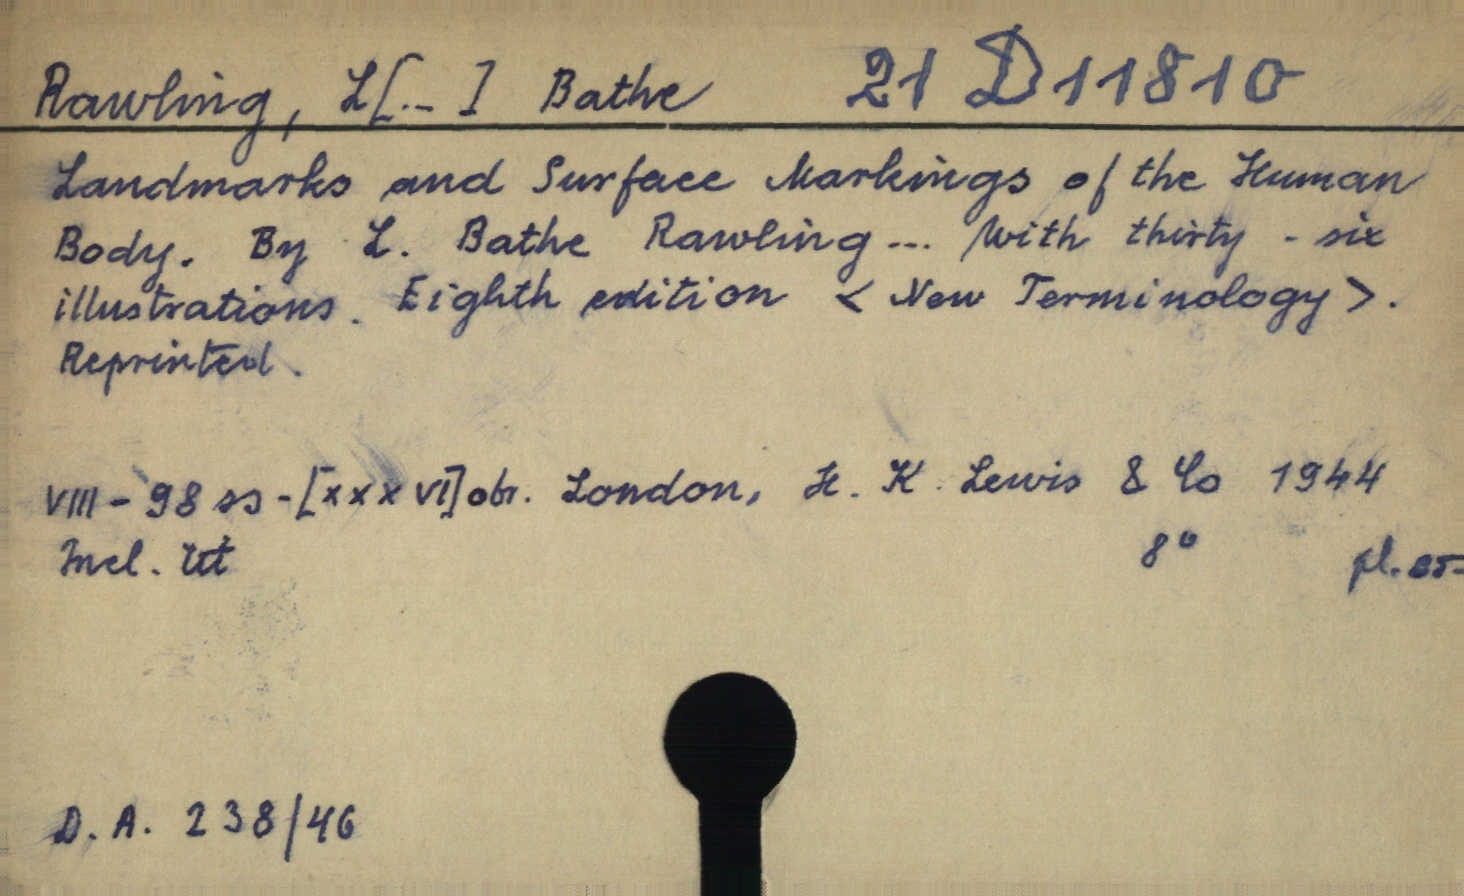 Rawling, L[...] Bathe 21 D 11810
Landmarks and Surface Markings of the Human
Body. By L. Bathe Rawling... With thirty-six
illustrations. Eighth edition <New Terminology>.
Reprinted.
VIII-98 ss-[XXXVI] obr. London, H. K. Lewis & Co 1944
Incl. tit 8° pl.
D. A. 238/46